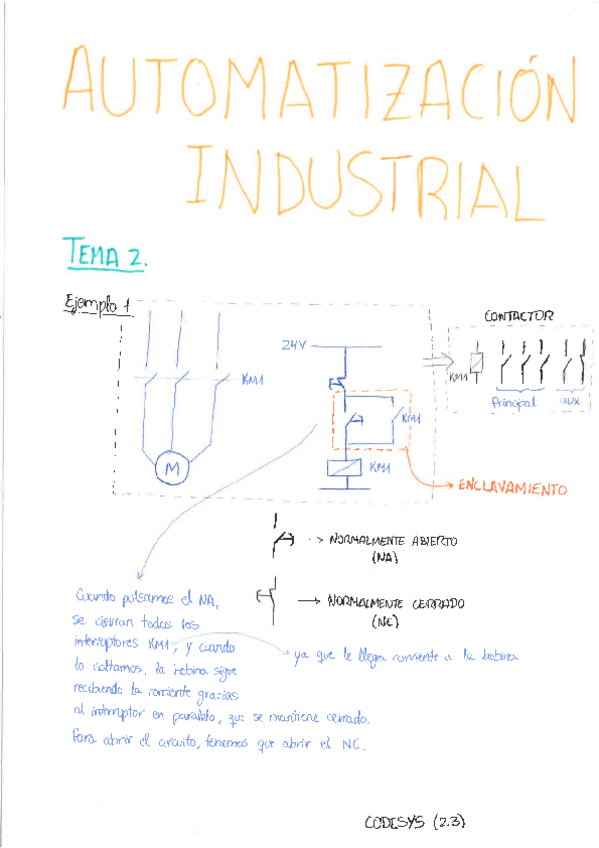 AUTOMATIZACIÓN
INDUSTRIAL
TEMA 2.
Ejemplo 1
CONTACTOR
24V
KM1
KM1
KM1
Principal
aux.
M
KM1
ENCLAVAMIENTO
NORMALMENTE ABIERTO
(NA)
Cuando pulsamos el NA,
NORMALMENTE CERRADO
(NC)
se cierran todos los
interruptores KM1, y cuando
ya que le llega corriente a la bobina
lo soltamos, la bobina sigue
recibiendo la corriente gracias
al interruptor en paralelo, que se mantiene cerrado.
Para abrir el circuito, tenemos que abrir el NC.
CODESYS (2.3)